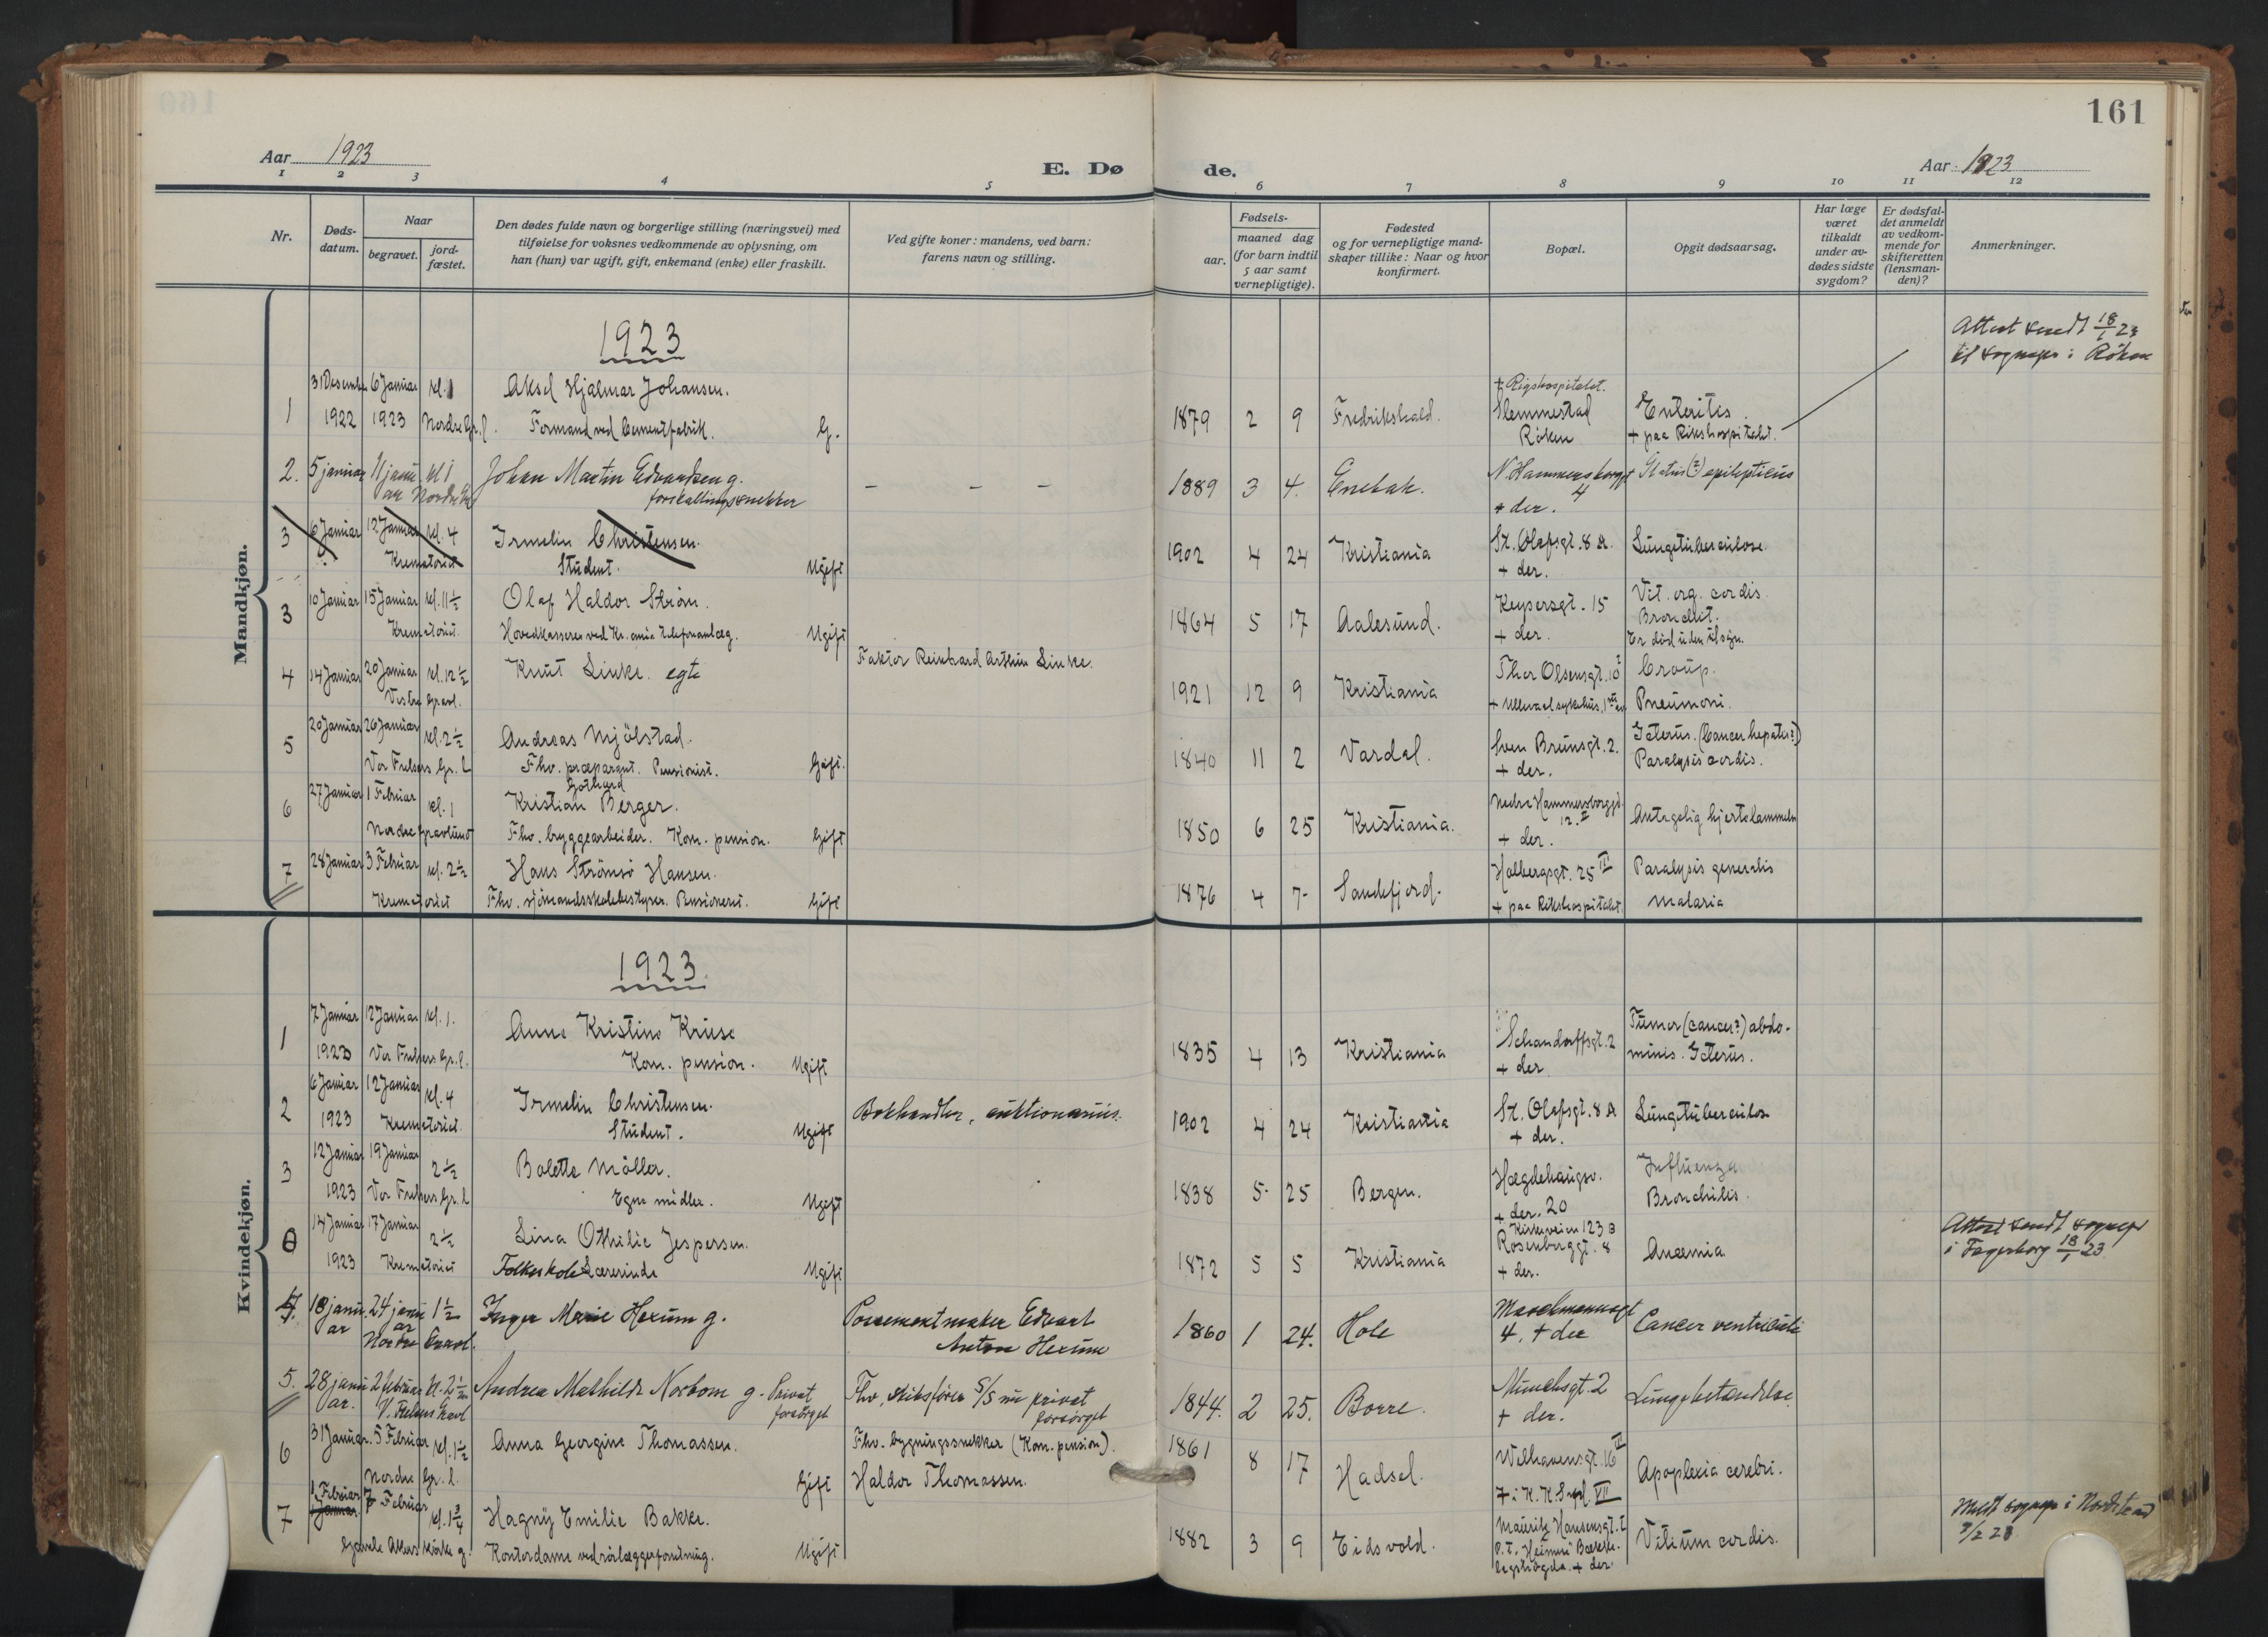 161
Aar 1923
E. Dø de.
Aar 1923
1 2 3 4 5 6 7 8 9 10 11 12
Nr.
Døds-
datum.
Naar
begravet.
jord-
fæstet.
Den dødes fulde navn og borgerlige stilling (næringsvei) med
tilføielse for voksnes vedkommende av oplysning, om
han (hun) var ugift, gift, enkemand (enke) eller fraskilt.
Ved gifte koner: mandens, ved barn:
farens navn og stilling.
Fødsels-
aar.
maaned dag
(for barn indtil
5 aar samt
vernepligtige).
Fødested
og for vernepligtige mand-
skaper tillike: Naar og hvor
konfirmert.
Bopæl.
Opgit dødsaarsag.
Har læge
været
tilkaldt
under av-
dødes sidste
sygdom?
Er dødsfal-
det anmeldt
av vedkom-
mende for
skifteretten
(lensman-
den)?
Anmerkninger.
Mandkjøn.
1923
Attest sendt 18/1 23
til sognepr i Röken
31 Desember 6 Januar kl. 1 Aksel Hjalmar Johansen. + Rigshospitalet.
1 1922 1923 Nordre Gr.l. Formand ved Cementfabrik. G. 1879 2 9 Fredrikshald. Slemmestad Enteritis.
Röken + paa Rikshospitalet.
2. 5 januar 11 januar kl 1 Johan Martin Edvardsen g. — — — 1889 3 4. Enebak. N. Hammersborggt Status (?) epilepticus
Nordre Gr forskallingssnekker 4
+ der.
3 6 Januar 12 Januar kl. 4 Irmelin Christensen. 1902 4 24 Kristiania St. Olafsgt. 8 A. Lungetuberculose.
Krematoriet Student. Ugift + der.
3 10 Januar 15 Januar kl. 11 1/2 Olaf Haldor Ström. 1864 5 17 Aalesund. Keysersgt. 15 Vit. org. cordis.
Krematoriet. Hovedkasserer ved Kr.ania Telefonanlæg. Ugift + der. Bronchit.
Er död uden tilsyn.
4 14 Januar 20 Januar kl. 12 1/2 Knut Linke. egte Faktor Reinhard Arthur Linke. 1921 12 9 Kristiania Thor Olsensgt. 10 Croup.
Vestre Gravl. + Ullevaal sykehus. Pneumoni.
5 20 Januar 26 Januar kl. 2 1/2 Andreas Mjölstad. 1840 11 2 Vardal. Sven Brunsgt. 2. Icterus. (Cancer hepatis?)
Vor Frelsers Gr. l. Fhv. præparant. Pensionist. Gift. + der. Paralysis cordis.
Gothard
6 27 Januar 1 Februar kl. 1 Kristian Berger. 1850 6 25 Kristiania. Nedre Hammersborggt. 12. II Antagelig hjertelammelse
Nordre Gravlund Fhv. byggearbeider. Kom. pension. Gift + der.
7 28 Januar 3 Februar kl. 2 1/2 Hans Strömsö Hansen. 1876 4 7 Sandefjord. Holbergsgt. 25 III Paralysis generalis
Krematoriet Fhv. sjömandsskolebestyrer. Pensioneret. Gift + paa Rikshospitalet. Malaria
Kvindekjøn.
1923.
1 7 Januar 12 Januar kl. 1. Anne Kristine Kruse 1835 4 13 Kristiania Schandorffsgt. 2 Tumor (cancer?) abdo-
1923 Vor Frelsers Gr. l. Kom. pension. Ugift + der minis. Icterus.
2 6 Januar 12 Januar kl. 4 Irmelin Christensen. Bokhandler, auktionarius. 1902 4 24 Kristiania St. Olafsgt. 8 A Lungtuberculose
1923 Krematoriet. Student. Ugift + der.
3 12 Januar 19 Januar 2 1/2 Bolette Möller. 1838 5 25 Bergen. Hægdehaugsv. Influenza
1923 Vor Frelsers Gr. l. Egne midler. Ugift + der. 20 Bronchitis.
0 14 Januar 17 Januar 2 1/2 Lina Othilie Jespersen. 1872 5 5 Kristiania Kirkeveien 123 B Anæmia. Attest sendt sognepr
1923 Krematoriet Folkeskole Lærerinde Ugift Rosenborggt. 8 i Fagerborg 18/1 23
+ der.
4. 18 januar 24 januar 1 1/2 Inger Marie Hexum g. Possementmaker Edvart 1860 1 24. Hole 4. + der Cancer ventriculi
Nordre Gravl. Anton Hexum
5. 28 januar. 2 februar kl. 2 1/2 Andrea Mathilde Norbom g. Privat Fhv. skibsfører S/S nu privat 1844. 2 25. Borre. Munchsgt. 2 Lungebetændelse.
V. Frelsers Gravl forsörget forsörget + der.
6 31 Januar. 5 Februar kl. 1 1/2 Anna Georgine Thomassen. Fhv. bygningssnekker (Kom. pension). 1861 8 17 Hadsel. Welhavensgt. 16 II Apoplexia cerebri.
Nordre Gr. l. Gift Haldor Thomassen. + i K. K. VII
7 1 Februar Januar 7 Februar kl. 1 3/4 Hagny Emilie Bakke. 1882 3 9 Eidsvold. Mauritz Hansensgt. Vitium cordis. Meldt sognepr i Nordstrand
Gamle Akers kirke g. Kontordame ved rörlæggerforretning. Ugift P. T. Heimen 9/2 23
+ der.